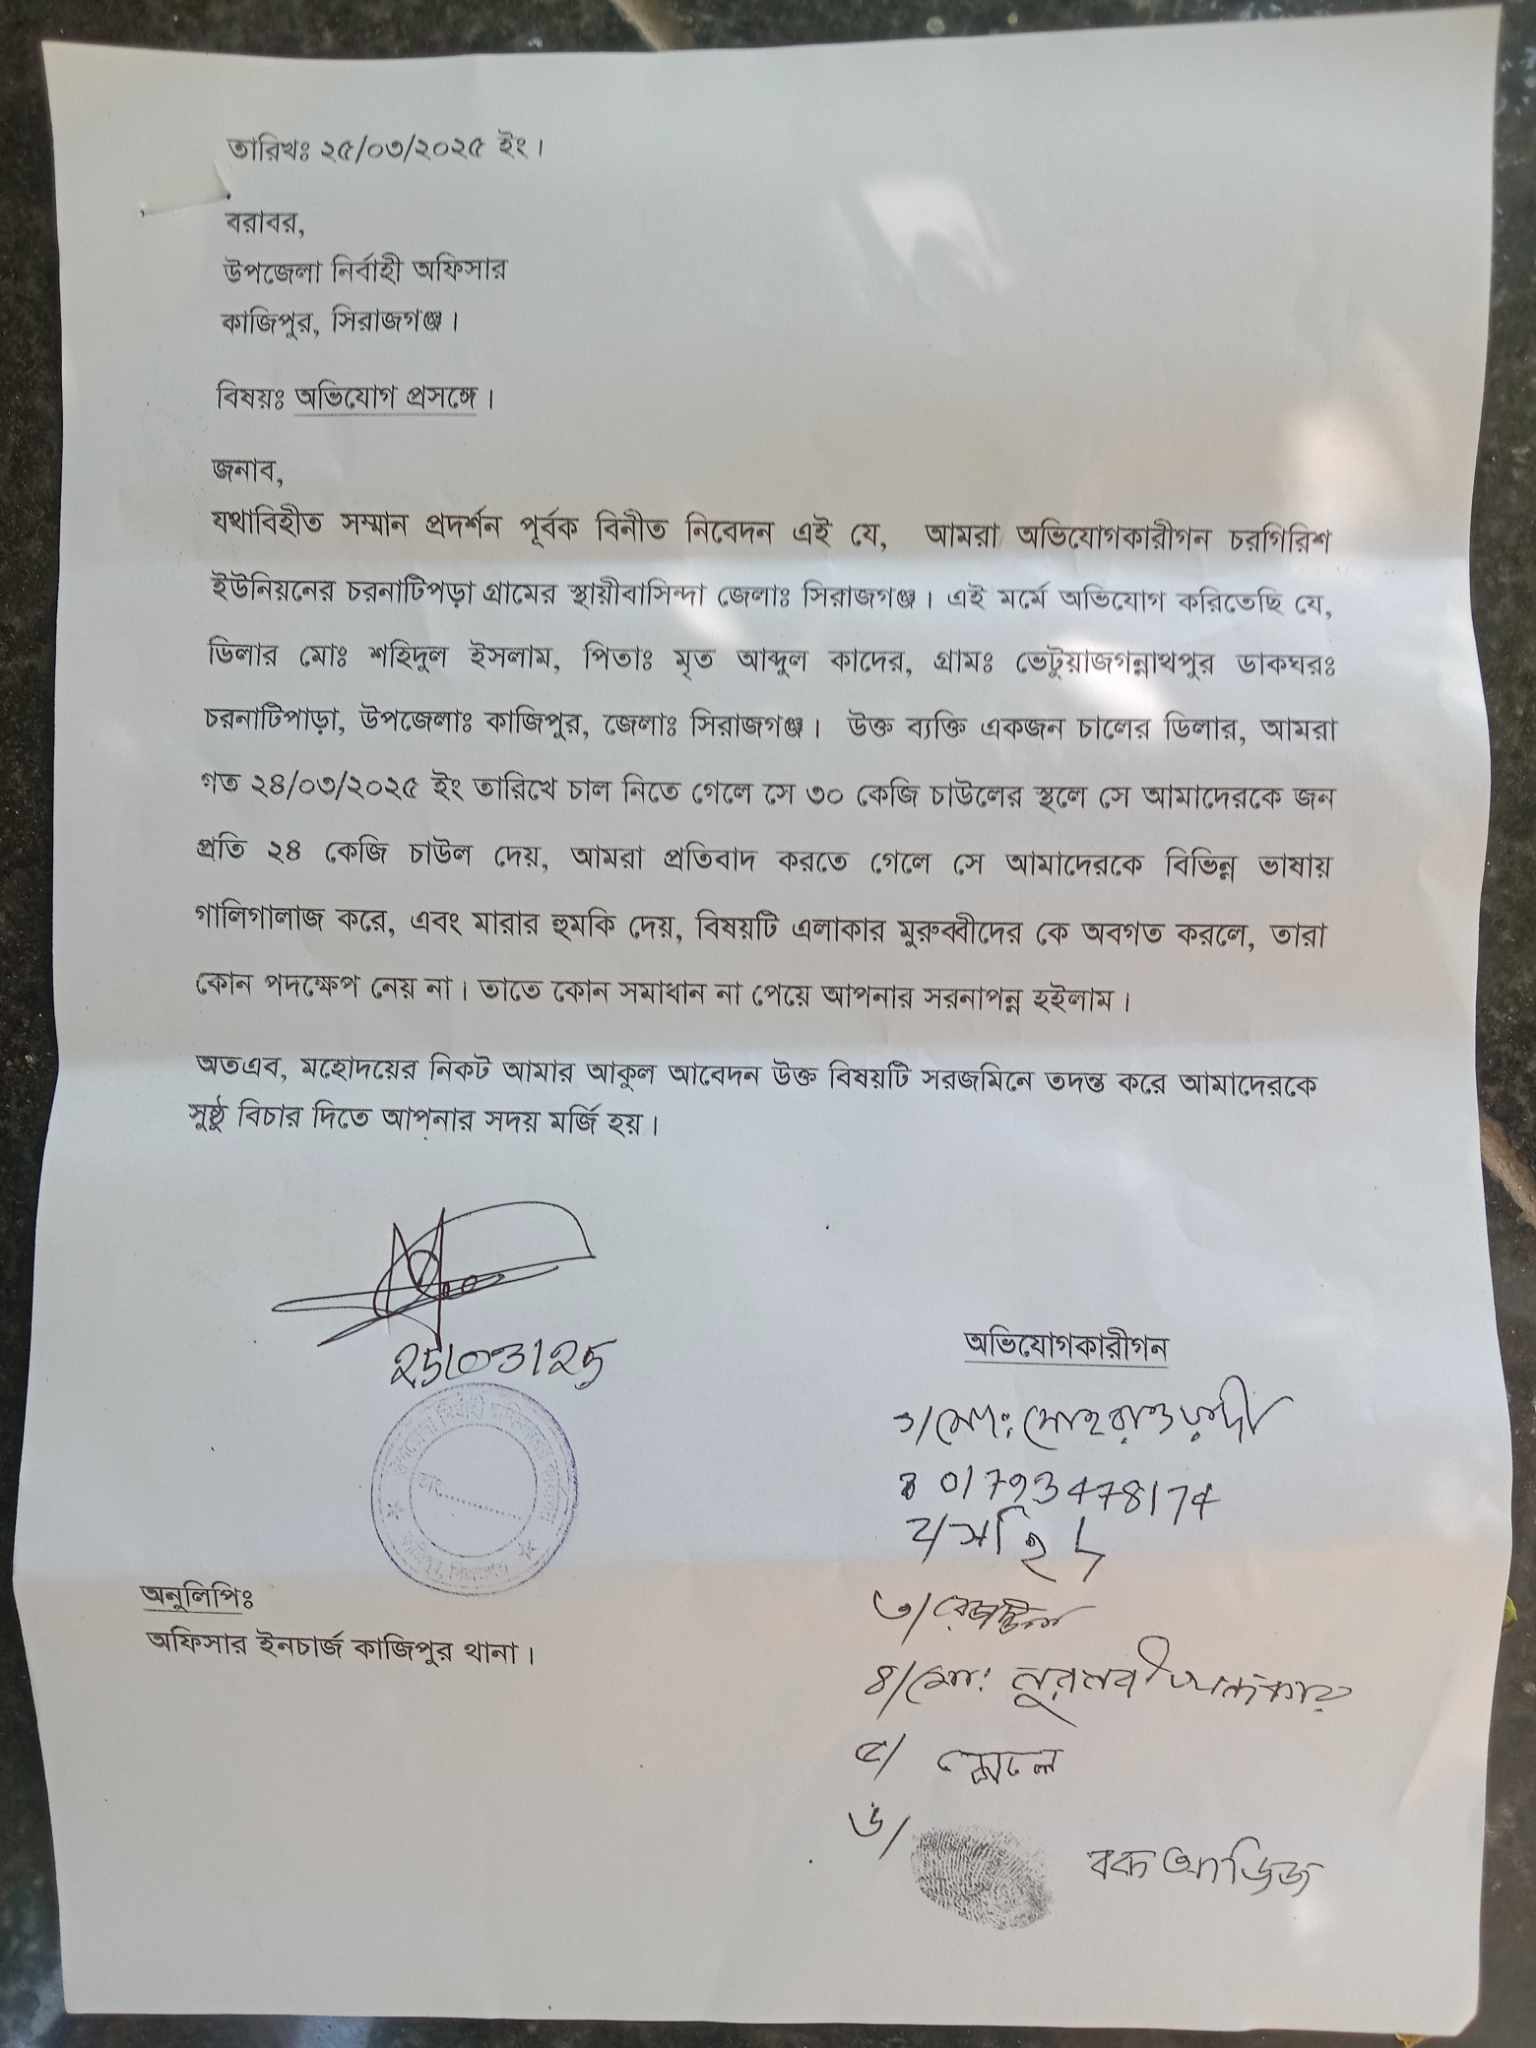 তারিখঃ ২৫/০৩/২০২৫ ইং।
বরাবর,
উপজেলা নির্বাহী অফিসার
কাজিপুর, সিরাজগঞ্জ।
বিষয়ঃ অভিযোগ প্রসঙ্গে।
জনাব,
যথাবিহীত সম্মান প্রদর্শন পূর্বক বিনীত নিবেদন এই যে, আমরা অভিযোগকারীগন চরগিরিশ
ইউনিয়নের চরনাটিপড়া গ্রামের স্থায়ীবাসিন্দা জেলাঃ সিরাজগঞ্জ। এই মর্মে অভিযোগ করিতেছি যে,
ডিলার মোঃ শহিদুল ইসলাম, পিতাঃ মৃত আব্দুল কাদের, গ্রামঃ ভেটুয়াজগন্নাথপুর ডাকঘরঃ
চরনাটিপাড়া, উপজেলাঃ কাজিপুর, জেলাঃ সিরাজগঞ্জ। উক্ত ব্যক্তি একজন চালের ডিলার, আমরা
গত ২৪/০৩/২০২৫ ইং তারিখে চাল নিতে গেলে সে ৩০ কেজি চাউলের স্থলে সে আমাদেরকে জন
প্রতি ২৪ কেজি চাউল দেয়, আমরা প্রতিবাদ করতে গেলে সে আমাদেরকে বিভিন্ন ভাষায়
গালিগালাজ করে, এবং মারার হুমকি দেয়, বিষয়টি এলাকার মুরুব্বীদের কে অবগত করলে, তারা
কোন পদক্ষেপ নেয় না। তাতে কোন সমাধান না পেয়ে আপনার সরনাপন্ন হইলাম।
অতএব, মহোদয়ের নিকট আমার আকুল আবেদন উক্ত বিষয়টি সরজমিনে তদন্ত করে আমাদেরকে
সুষ্ঠু বিচার দিতে আপনার সদয় মর্জি হয়।
25/03/25
অভিযোগকারীগন
১/ মোঃ সোহরাওয়ার্দী
01793478174
২/ সহিদ
৩/
৪/ মোঃ নুরনবী
৫/
৬/
অনুলিপিঃ
অফিসার ইনচার্জ কাজিপুর থানা।